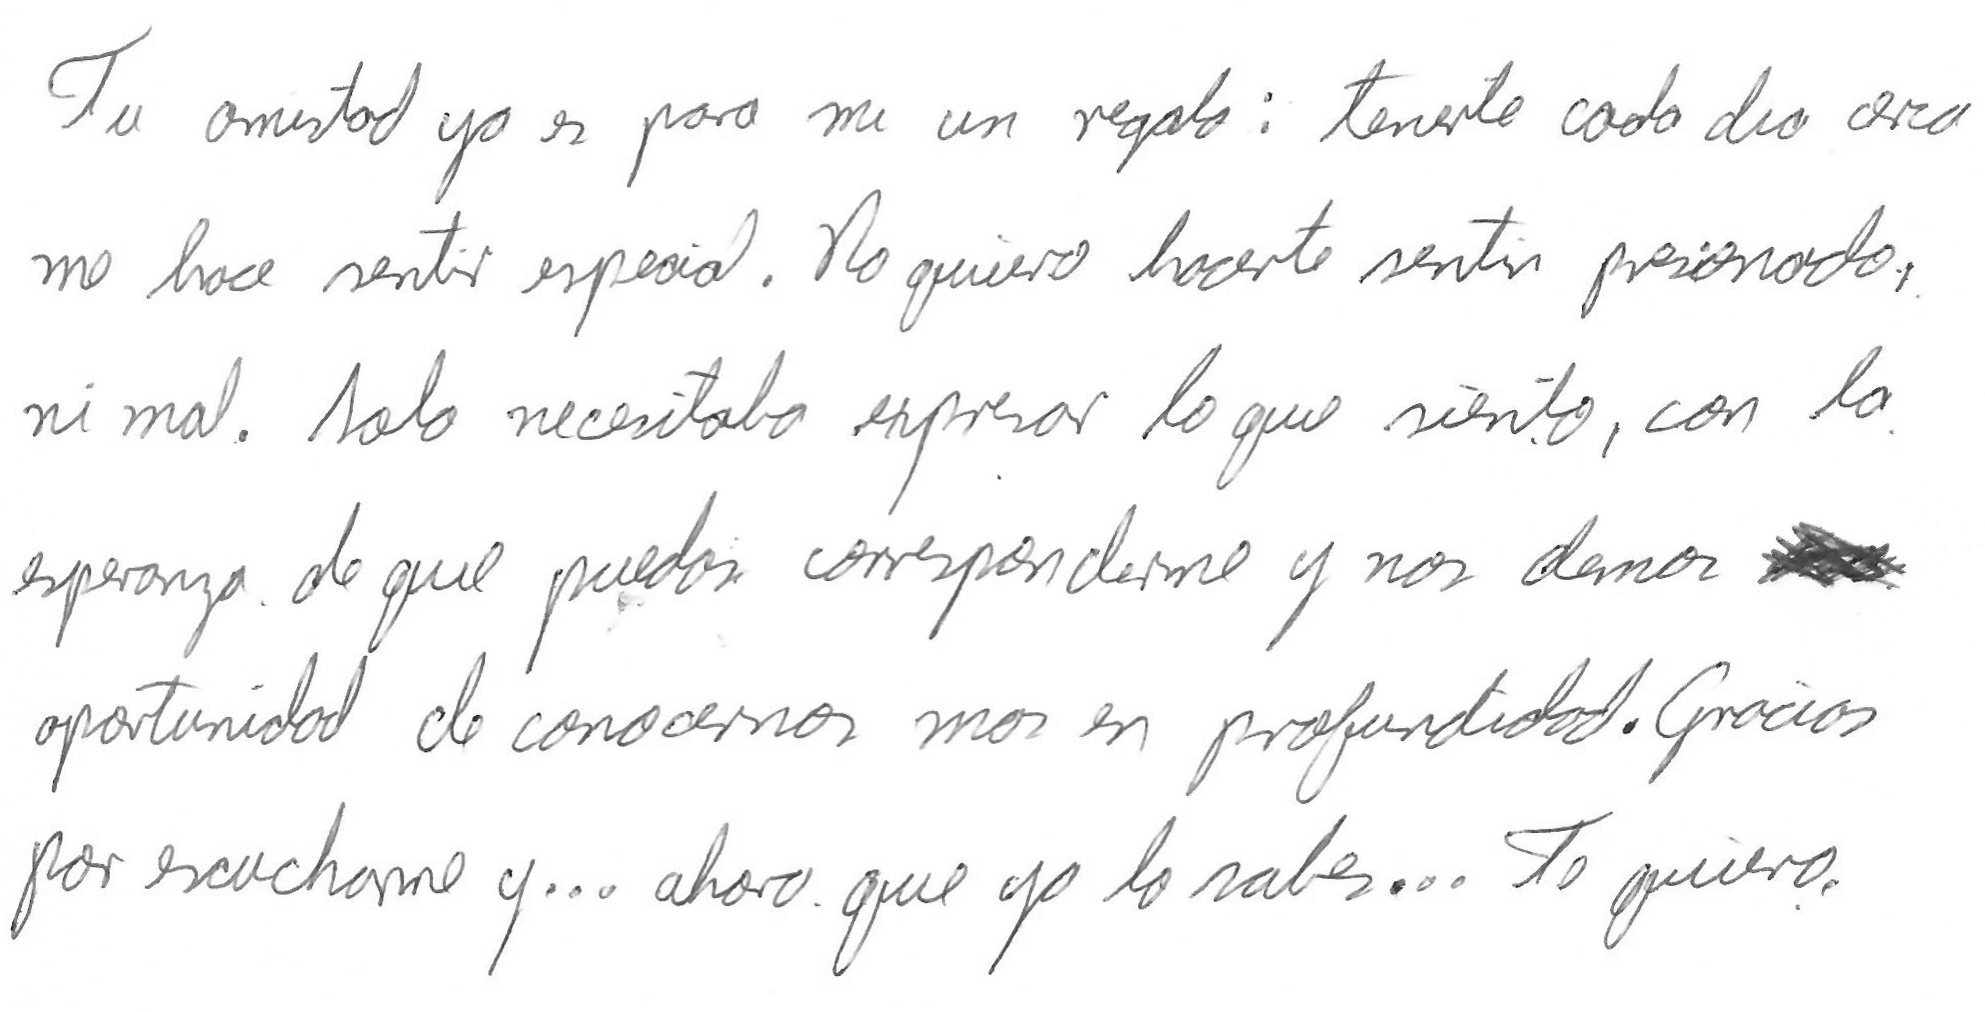 Tu amistad ya es para mi un regalo: tenerte cada dia cerca
me hace sentir especial. No quiero hacerte sentir presionado,
ni mal. Solo necesitaba expresar lo que siento, con la
esperanza de que puedas corresponderme y nos demos
oportunidad de conocernos mas en profundidad. Gracias
por escucharme y... ahora que ya lo sabes... Te quiero.